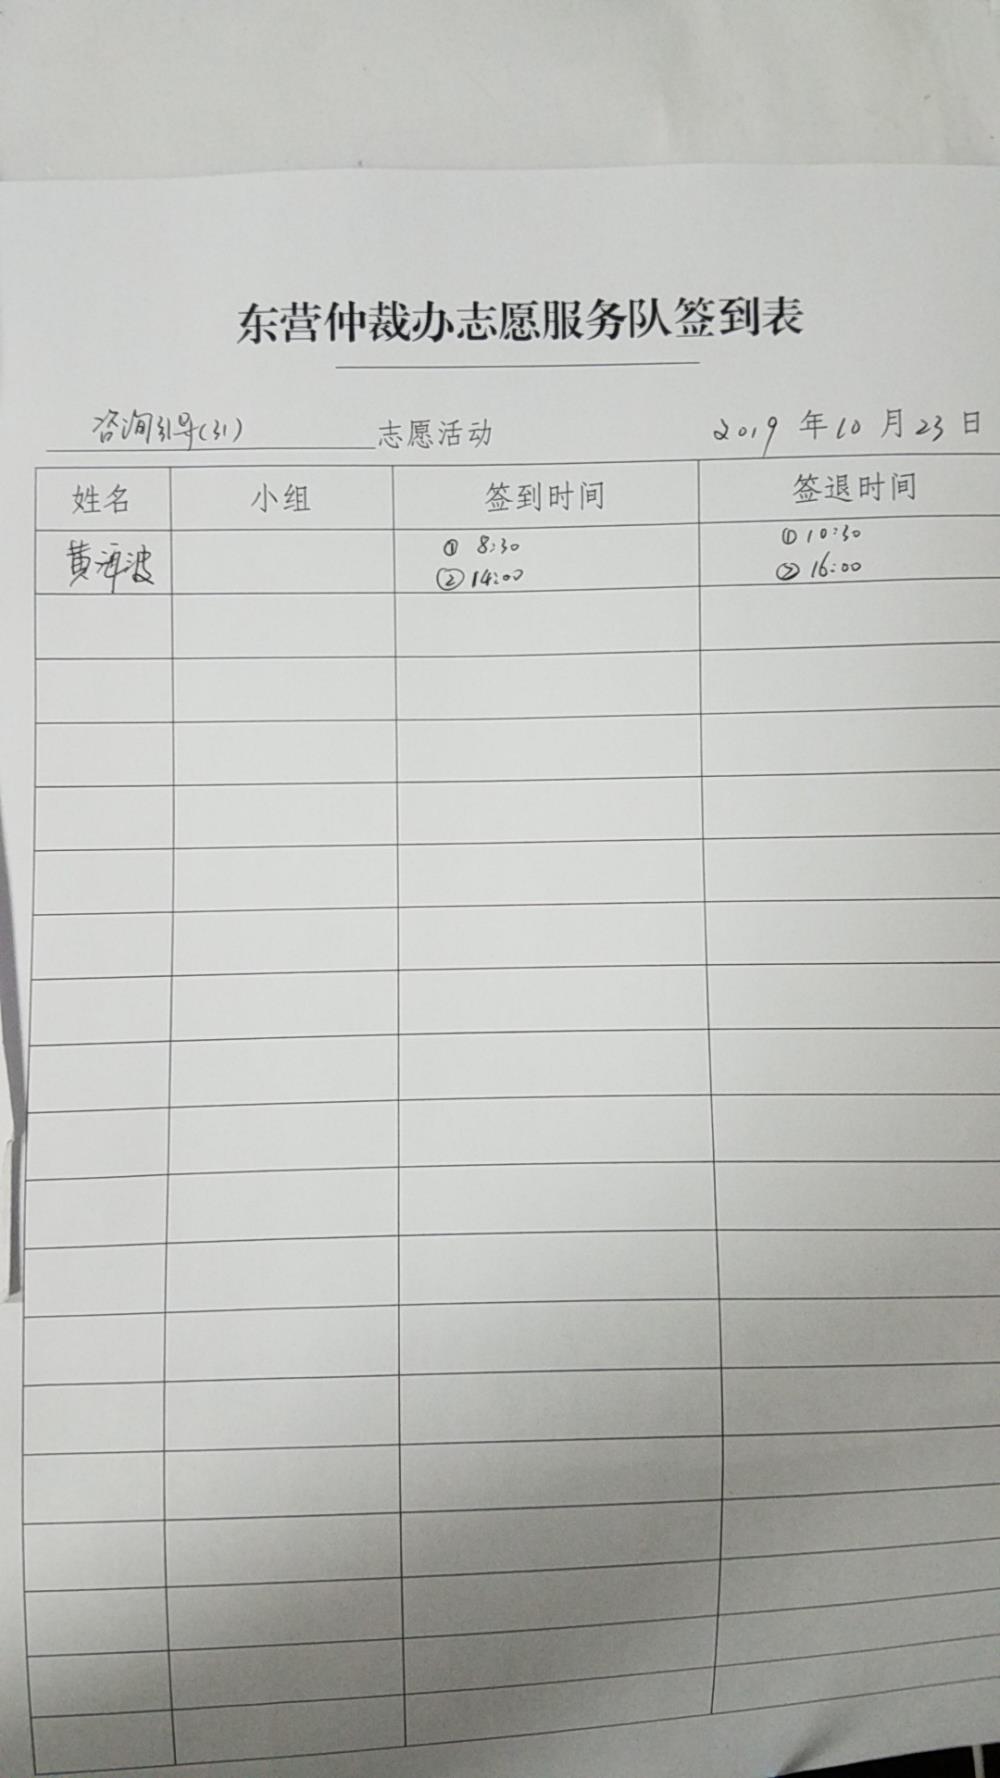 东营仲裁办志愿服务队签到表
咨询引导(31)志愿活动 2019年10月23日
姓名 小组 签到时间 签退时间
黄海波 ① 8:30 ① 10:30
② 14:00 ② 16:00